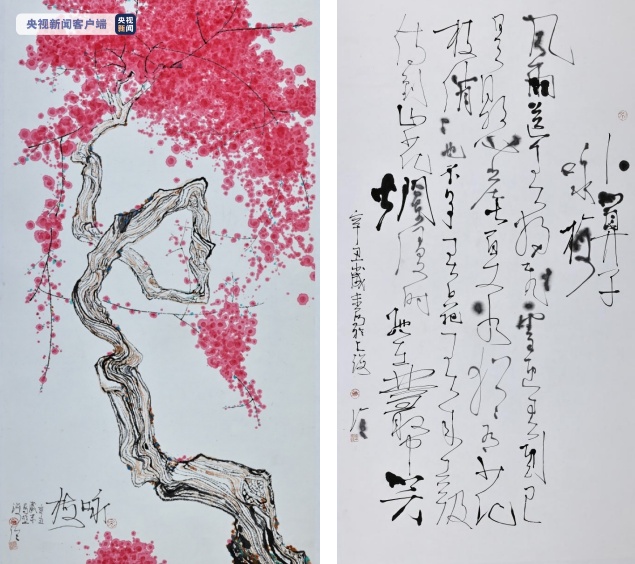 央视新闻客户端
央视
新闻
咏梅
卜算子
咏梅
风雨送春归飞雪迎春到已
是悬崖百丈冰犹有花
枝俏俏也不争春只把春来报
待到山花烂漫时她在丛中笑
辛丑歲